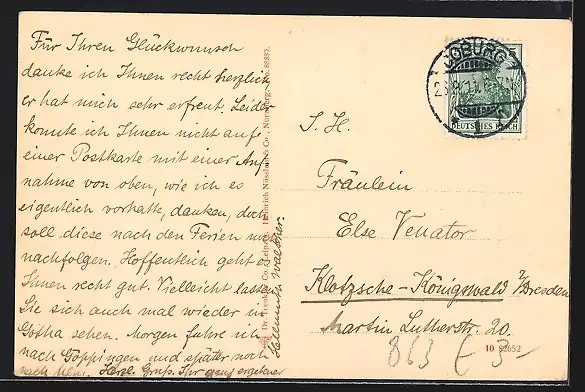 Für Ihren Glückwunsch
danke ich Ihnen recht herzlich
er hat mich sehr erfreut. Leider
konnte ich Ihnen nicht auf
einer Postkarte mit einer Auf-
nahme von oben, wie ich es
eigentlich vorhatte, danken, doch
soll diese nach den Ferien
nachfolgen. Hoffentlich geht es
Ihnen recht gut. Vielleicht lassen
Sie sich auch mal wieder in
Gotha sehen. Morgen fahre ich
nach Göppingen und später noch
nach Ulm. Herzl. Gruß. Ihr ganz ergebener
Hellmuth
Trenkler Co., Leipzig. Heinrich Nüssler & Co., Nürnberg.
JOBURG
DEUTSCHES REICH
S. H.
Fräulein
Else Venator
Klotzsche-Königswald b/Dresden
Martin Lutherstr. 20.
10 82652